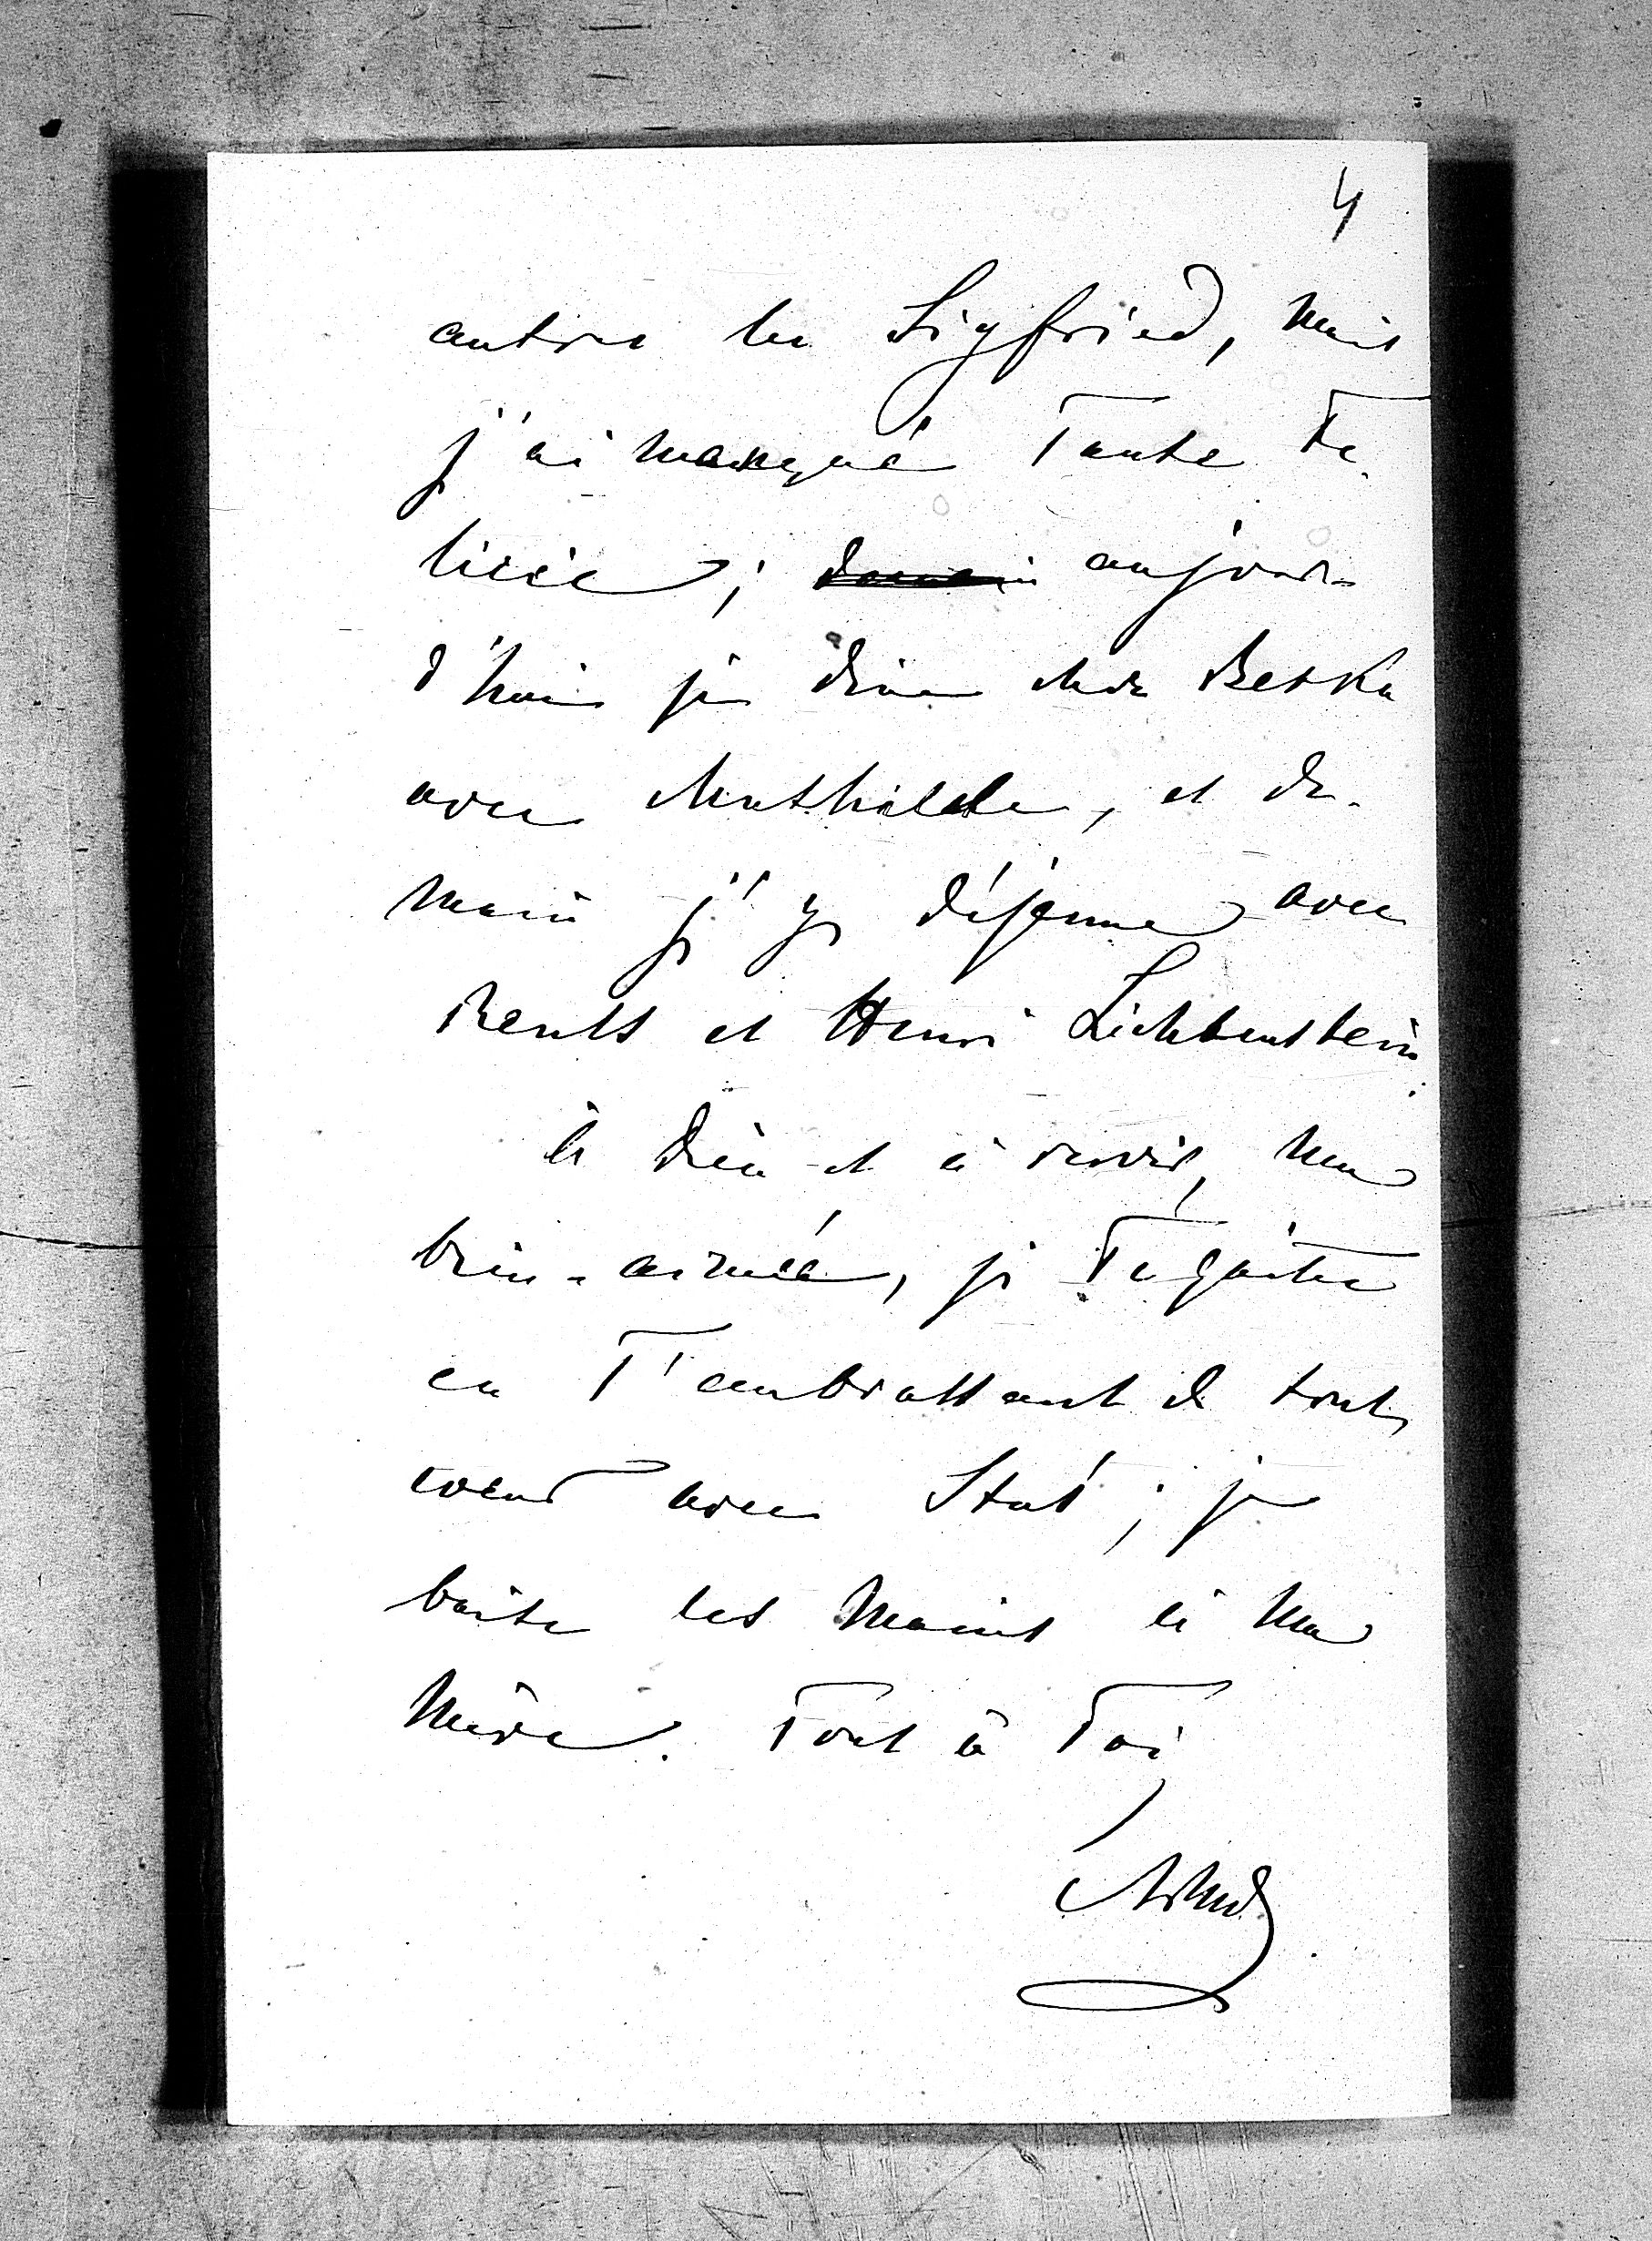 4
autres les Sigfried, mais
j'ai manqué Tante Fe-
licie; demain aujour-
d'hui je dine chez Betka
avec Mathilde, et de-
main j'y déjeune avec
Reuss et Henri Lichtenstein.
à Dieu et à revoir, ma
bien-aimée, je Te quitte
en T'embrassant de tout
coeur avec Stas; je
baise les mains à ma
mère. Tout à Toi